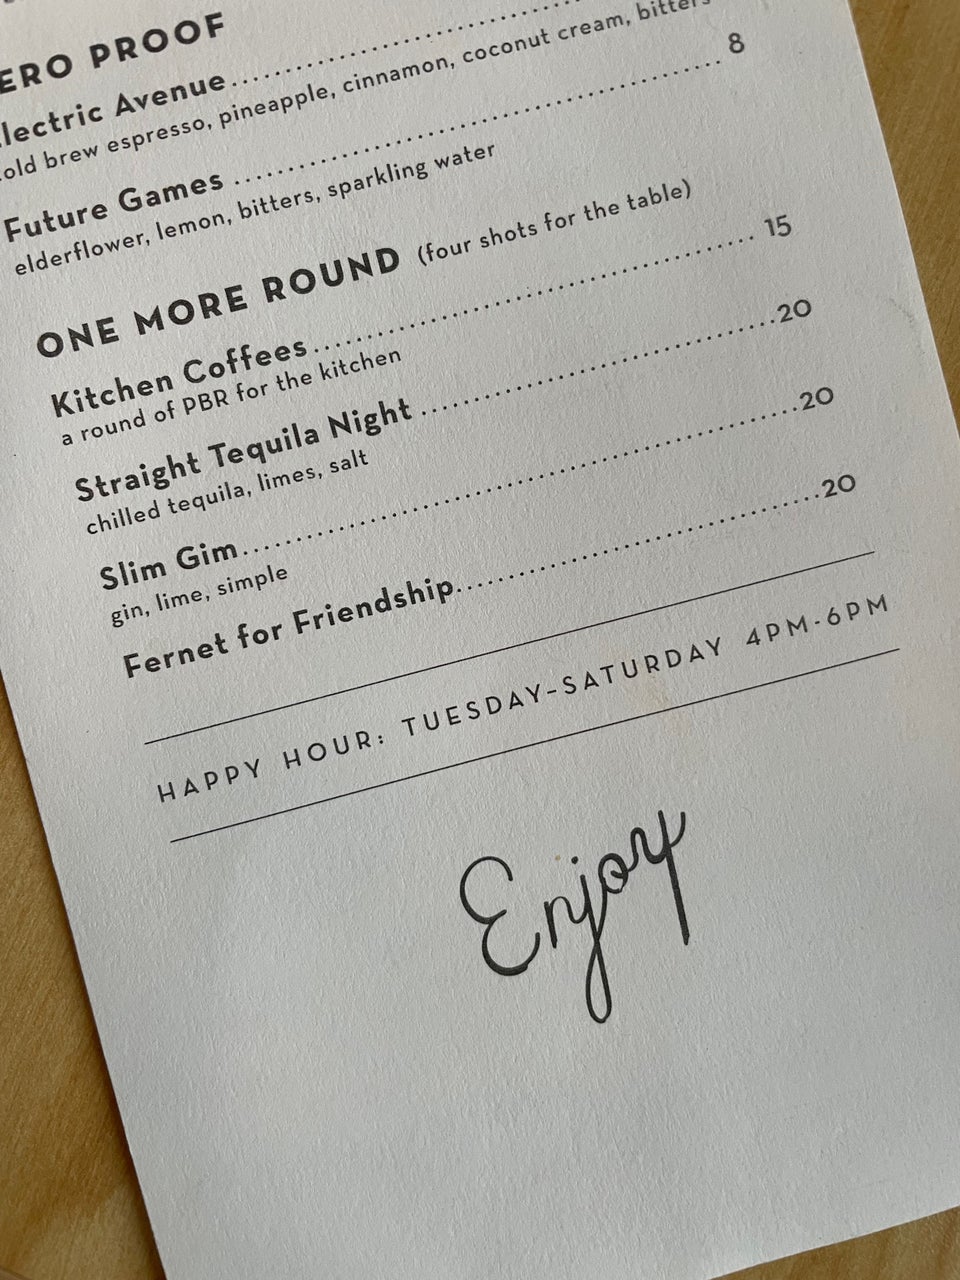 ERO PROOF
lectric Avenue
old brew espresso, pineapple, cinnamon, coconut cream, bitters
Future Games 8
elderflower, lemon, bitters, sparkling water
ONE MORE ROUND (four shots for the table)
Kitchen Coffees 15
a round of PBR for the kitchen
Straight Tequila Night 20
chilled tequila, limes, salt
Slim Gim 20
gin, lime, simple
Fernet for Friendship 20
HAPPY HOUR: TUESDAY-SATURDAY 4PM-6PM
Enjoy